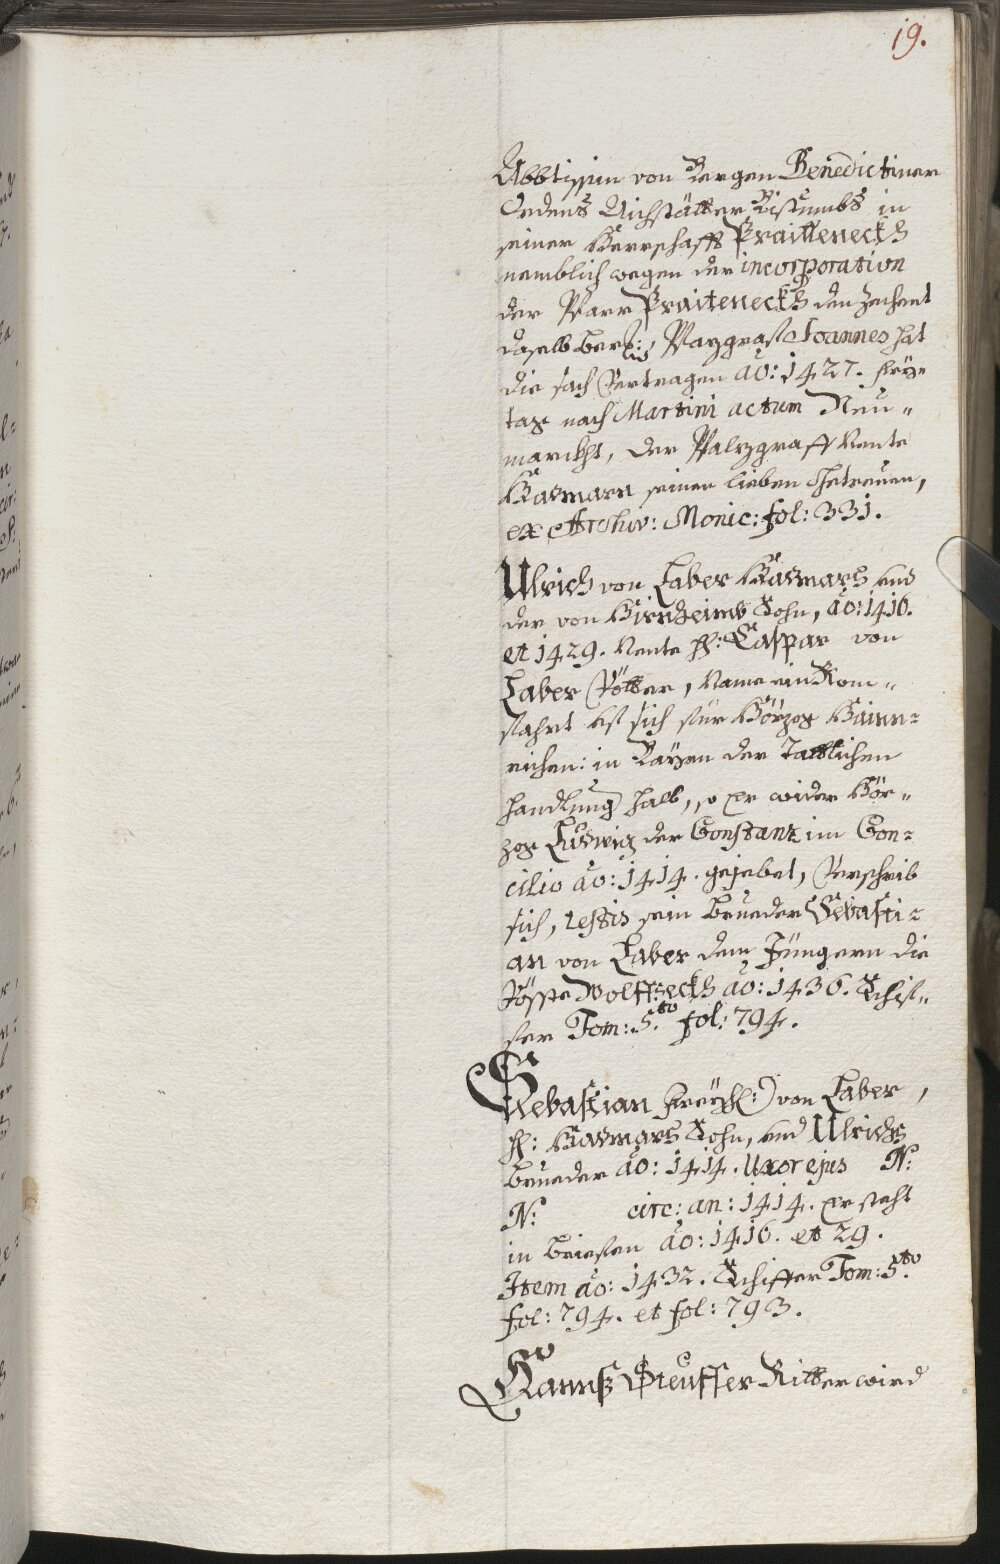 19.
Abbtissin von Bergen Benedictiner
Ordens Aichstätter Bistumbs in
seiner Herrschafft Praitteneckh
nemblich wegen der incorporation
der Pfarr Praiteneckh den Zechent
daselb Pfalzgraf Joannes hat
die sach Vertragen aõ: 1427. freÿ=
tag nach Martini actum Neu=
marckht, der Pfalzgraff Nente
Hadmarn seinen lieben Getreuen,
ex Archiv: Monic: fol: 331.
Ulrich von Laber Hadmars und
der von Hirnheimb Sohn, aõ: 1416.
et 1429. Nente H: Caspar von
Laber Vötter, Name ein
sich für Hörzog Hainn=
richen: in Bayrn der Tättlichen
handlung halb, so er wider Hör=
zog Ludwig der Constanz im Con=
cilio aõ: 1414. geiebet, Verschrib
sich, testis sein Brueder Sebasti=
an von Laber dem Jüngern die
Vösste Wolffseckh aõ: 1436. Schif=
fer Tom: 5.to fol: 794.
Sebastian von Laber,
H: Hadmars Sohn, und Ulrichs
Brueder aõ: 1414. Uxor ejus N:
N: circ: an: 1414. er steht
in briefen aõ: 1416. et 29.
Item aõ: 1432. Schiffer Tom: 5.to
fol: 794. et fol: 793.
Hannß Steuffer Ritter wird